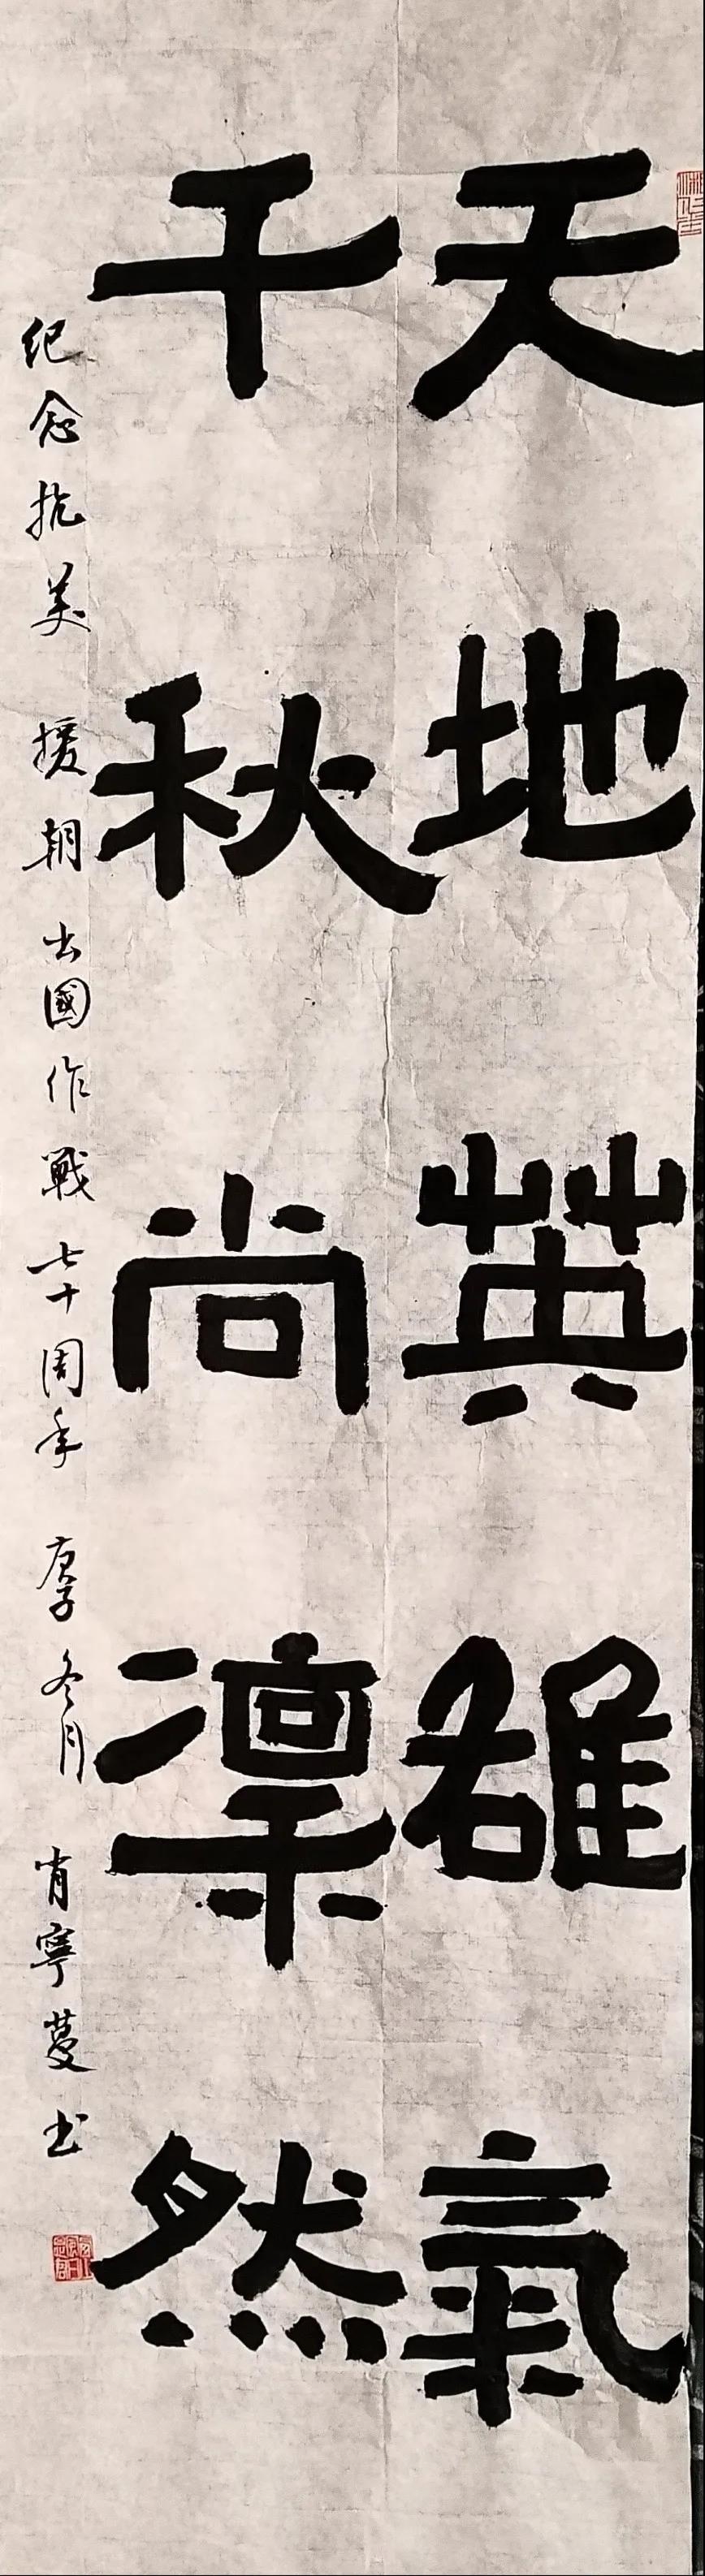 天地英雄氣
千秋尚凛然
纪念抗美 援朝出國作戰七十周年 庚子冬月 肖寧蔓书